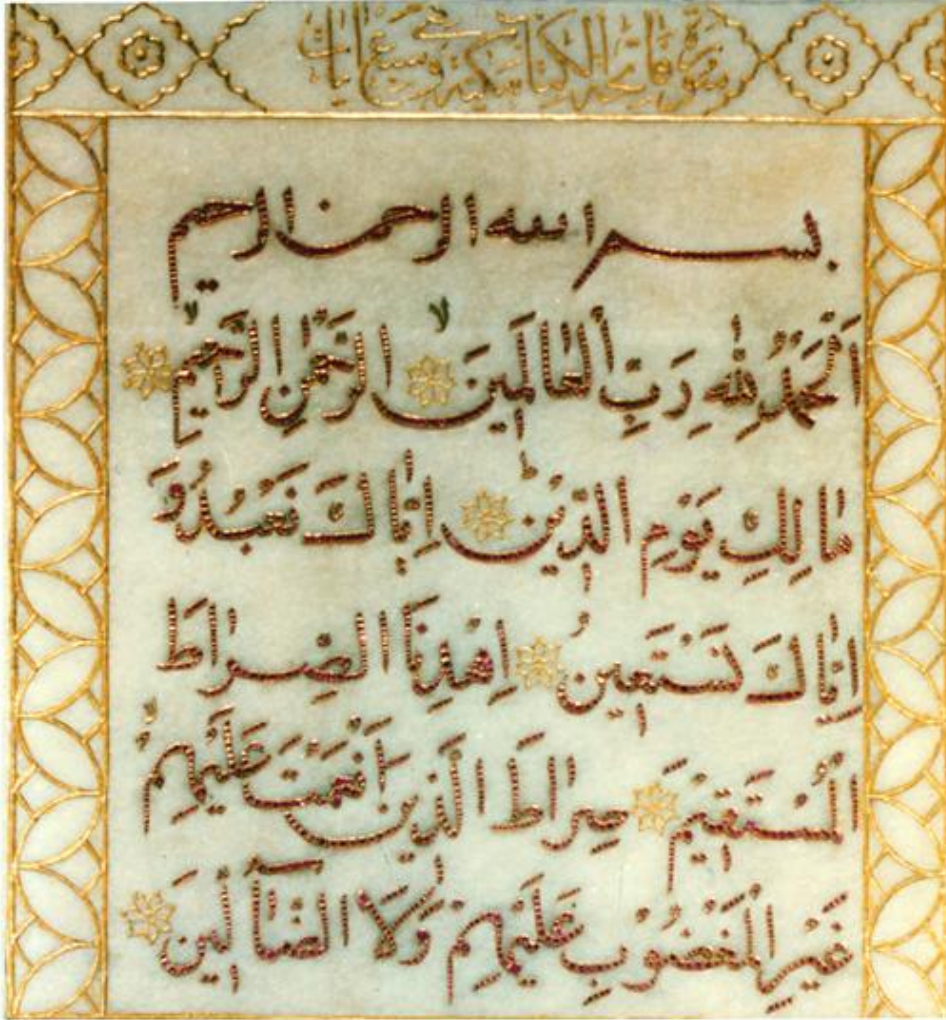 سورة فاتحة الكتاب مكية وهي سبع آيات
بسم الله الرحمن الرحيم
اَلْحَمْدُ لِلّٰهِ رَبِّ الْعَالَمِينَ الرَّحْمٰنِ الرَّحِيمِ
مَالِكِ يَوْمِ الدِّينِ اِيَّاكَ نَعْبُدُ وَ
اِيَّاكَ نَسْتَعِينُ اِهْدِنَا الصِّرَاطَ
الْمُسْتَقِيمَ صِرَاطَ الَّذِينَ اَنْعَمْتَ عَلَيْهِمْ
غَيْرِ الْمَغْضُوبِ عَلَيْهِمْ وَلَا الضَّآلِّينَ